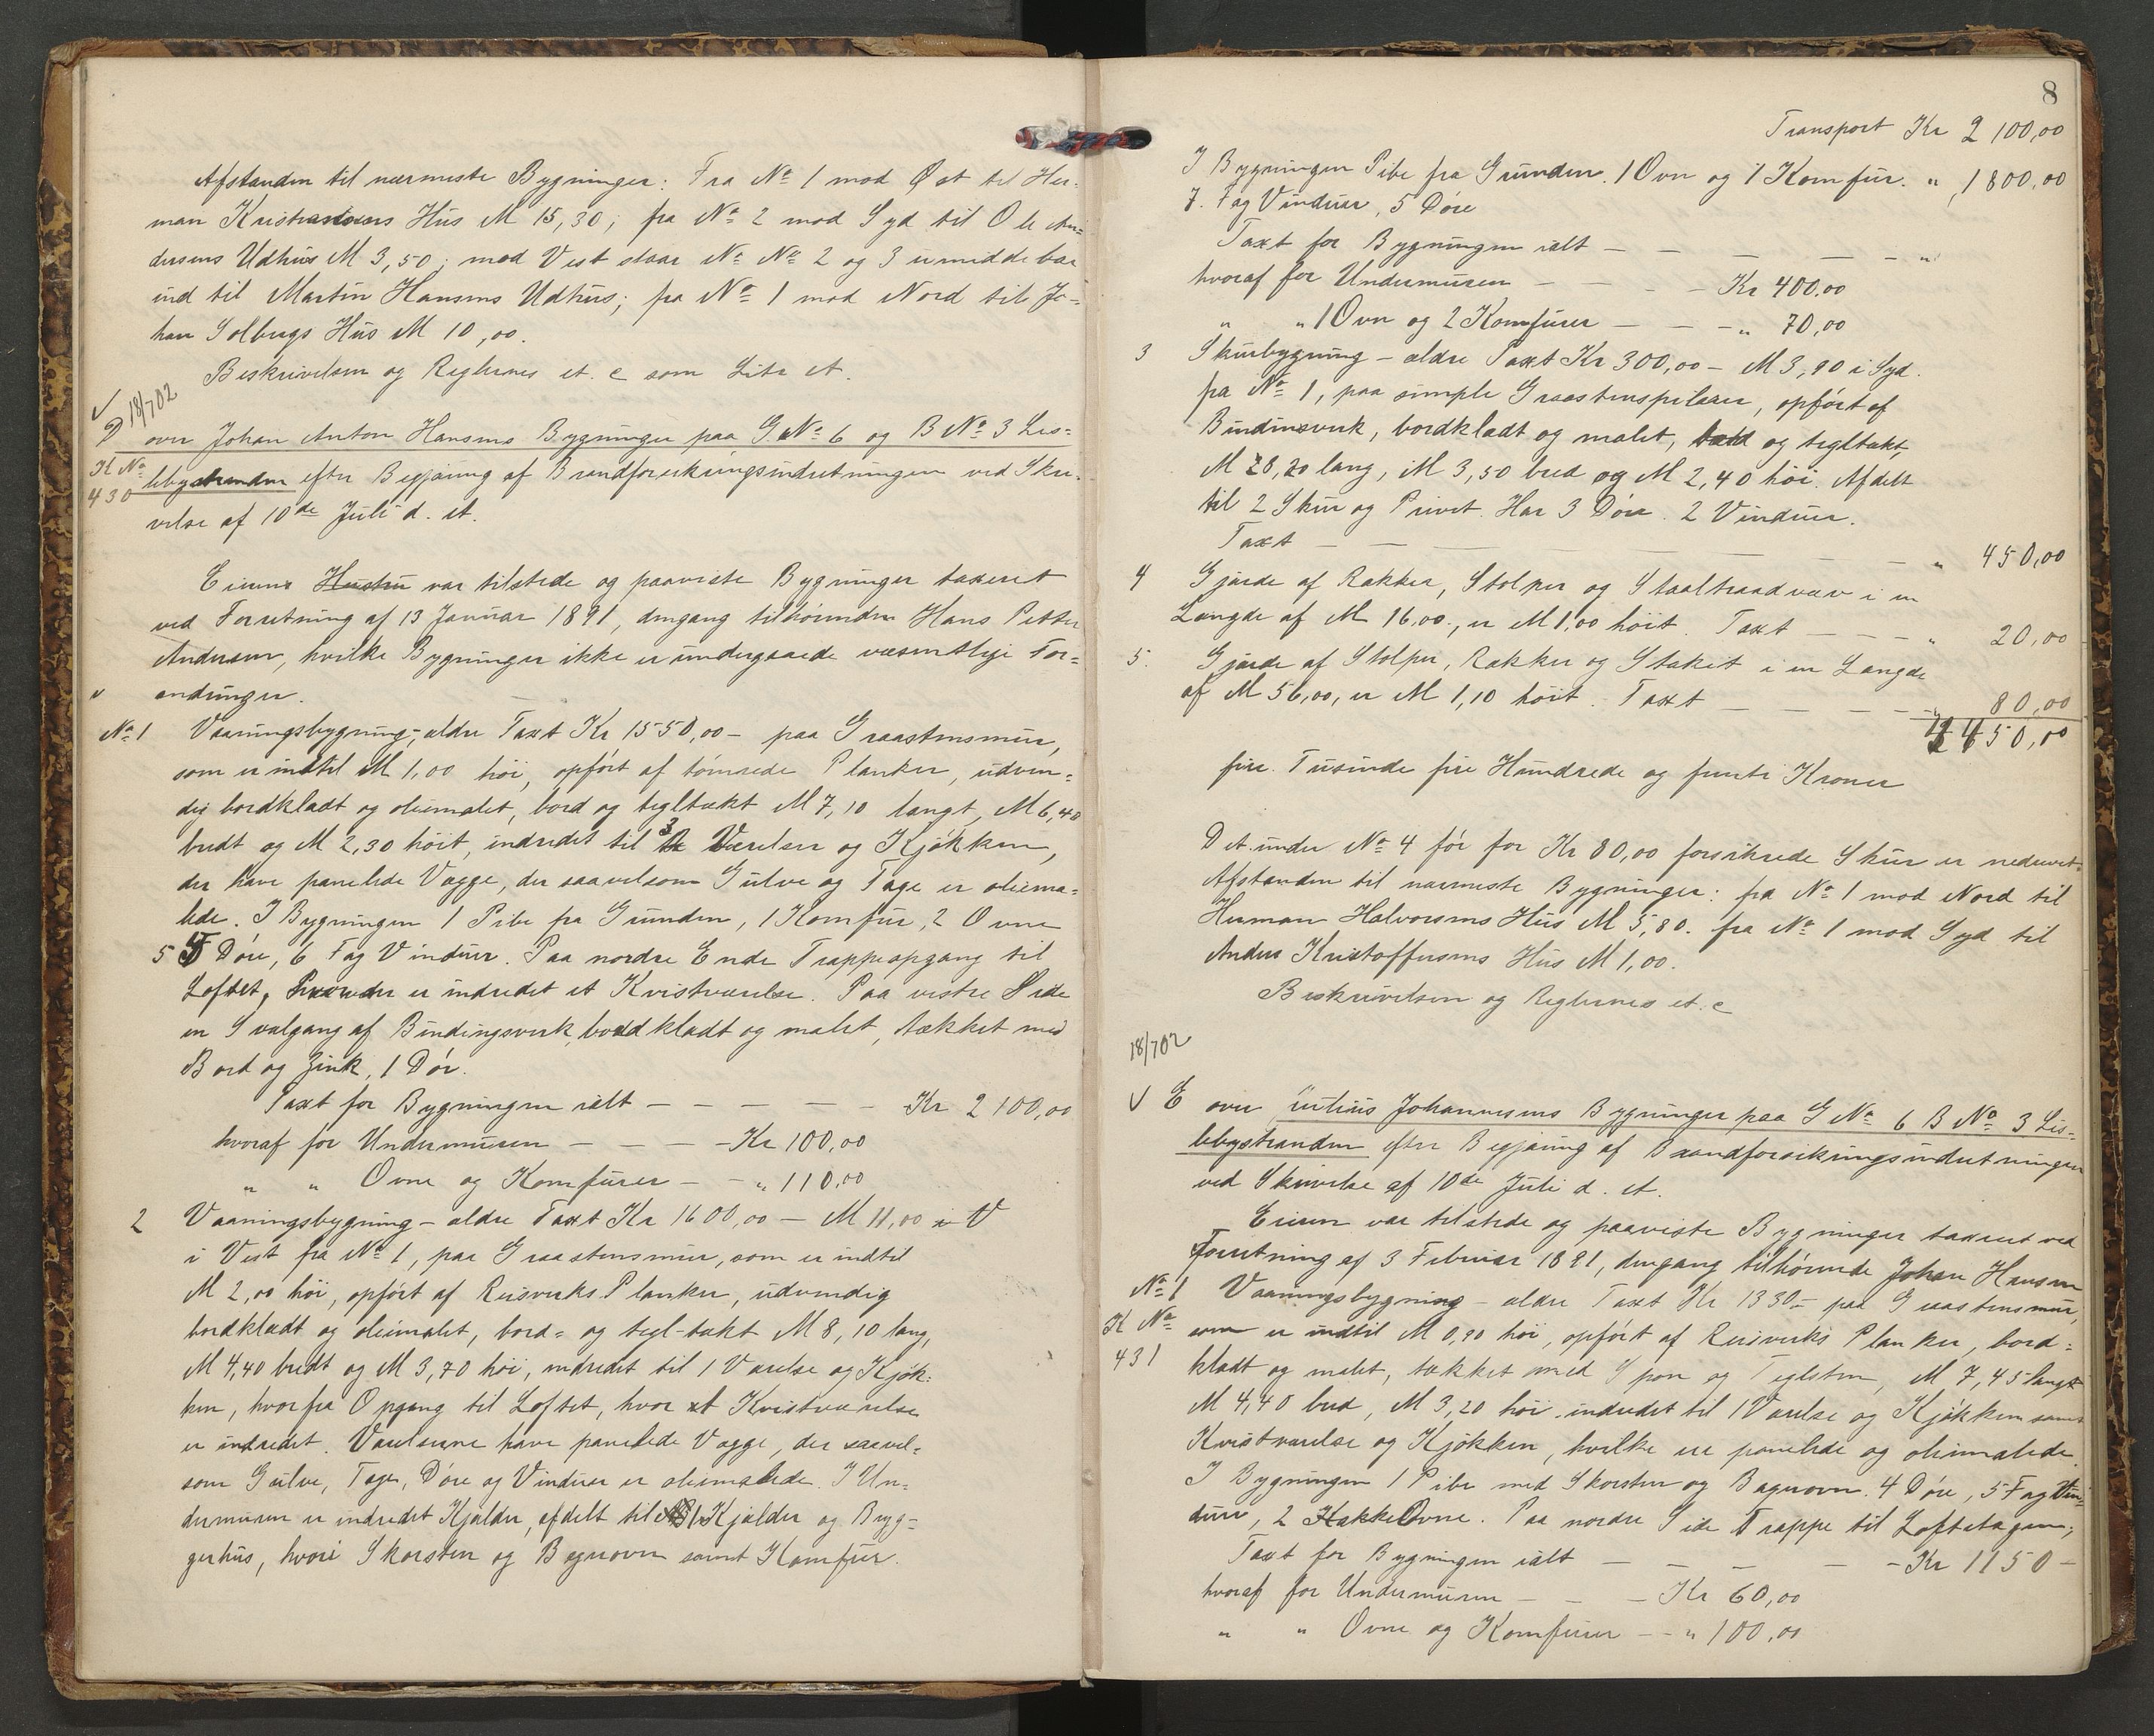 Afstanden til nærmeste Bygninger: Fra No 1 mod Øst til Her-
man Kristiansens Hus M 15,30; fra No 2 mod Syd til Ole An-
dersens Udhus M 3,50; mod Vest staar No No 2 og 3 umiddebar
ind til Martin Hansens Udhus; fra No 1 mod Nord til Jo-
han Solbergs Hus M 10,00.
Beskrivelsen og Reglernes et. c som Litr A.
18/7 02
D over Johan Anton Hansens Bygninger paa G No 6 og B No 3 Les-
K No 430
lebystranden efter Begjæring af Brandforsikringsindretningen ved Skri-
velse af 10de Juli d. A.
Eierens Hustru var tilstede og paaviste Bygninger taxeret
ved Forretning af 13 Januar 1891, dengang tilhørende Hans Petter
Andersen, hvilke Bygninger ikke er undergaaede væsentlige For-
andringer.
No 1 Vaaningsbygning, ældre Taxt Kr 1550,00 – paa Graastensmur,
som er indtil M 1,00 høi, opført af tømrede Planker, udven-
dig bordklædt og oliemalet, bord og tegltækt M 7,10 langt, M 6,40
bredt og M 2,30 høit, indredet til 3 Værelser og Kjøkken,
der have panelede Vægge, der saavelsom Gulve og Tage er oliema-
lede. I Bygningen 1 Pibe fra Grunden, 1 Komfur, 2 Ovne
5 Døre, 6 Fag Vinduer. Paa nordre Ende Trappeopgang til
Loftet, hvor der er indredet et Kvistværelse. Paa vestre Side
en Svalgang af Bindingsverk, bordklædt og malet, tækket med
Bord og Zink, 1 Dør.
Taxt for Bygningen ialt – – – – – Kr 2 100,00
hvoraf for Undermuren – – – – Kr 100,00
" " Ovne og Komfurer – – " 110,00
2 Vaaningsbygning – ældre Taxt Kr 1600,00 – M 11,00 i V
i Vest fra No 1, paa Graastensmur, som er indtil
M 2,00 høi, opført af Reisverks Planker, udvendig
bordklædt og oliemalet, bord- og tegl-tækt M 8,10 lang,
M 4,40 bredt og M 3,70 høi, indredet til 1 Værelse og Kjøk-
ken, hvorfra Opgang til Loftet, hvor et Kvistværelse
er indredet. Værelserne have panelede Vægge, der saavel-
som Gulve, Tage, Døre og Vinduer er oliemalede. I Un-
dermuren er indredet Kjælder, afdelt til 1 Kjælder og Bryg-
gerhus, hvori Skorsten og Bagerovn samt Komfur.
8
Transport Kr 2 100,00
I Bygningen Pibe fra Grunden. 1 Ovn og 1 Komfur. " 1 800,00
7. Fag Vinduer, 5 Døre
Taxt for Bygningen ialt – – – – – "
hvoraf for Undermuren – – – – Kr 400,00
" " 1 Ovn og 2 Komfurer – – – " 70,00
3 Skurbygning – ældre Taxt Kr 300,00 – M 3,90 i Syd.
fra No 1, paa simple Graastenspilarer, opført af
Bindinsverk, bordklædt og malet, og tegltækt,
M 28,20 lang, M 3,50 bred og M 2,40 høi. Afdelt
til 2 Skur og Privet. Har 3 Døre. 2 Vinduer.
Taxt – – – – – – – " 450,00
4 Gjærde af Rækker, Stolper og Staaltraadvæv i en
Længde af M 16,00., er M 1,00 høit. Taxt – – – " 20,00
5. Gjærde af Stolper, Rækker og Stakit i en Længde
af M 56,00, er M 1,10 høit. Taxt – – – – – " 80,00
4 450,00
fire Tusinde fire Hundrede og femti Kroner
Det under No 4 før for Kr 80,00 forsikrede Skur er nedrevet.
Afstanden til nærmeste Bygninger: fra No 1 mod Nord til
Herman Halvorsens Hus M 5,80. fra No 1 mod Syd til
Anders Kristoffersens Hus M 1,00.
Beskrivelsen og Reglernes et. c
18/7 02
E over Julius Johannesens Bygninger paa G No 6 B No 3 Les-
lebystranden efter Begjæring af Brandforsikringsindretningen
ved Skrivelse af 10de Juli d. A.
Eieren var tilstede og paaviste Bygninger taxeret ved
Forretning af 3 Februar 1891, dengang tilhørende Johan Hansen
No 1 Vaaningsbygning – ældre Taxt Kr 1330 – paa Graastensmur,
K No 431
som er indtil M 0,90 høi, opført af Reisverks Planker, bord-
klædt og malet, tækket med Spon og Teglsten, M 7,45 langt
M 4,40 bred, M 3,20 høi. indredet til 1 Værelse og Kjøkken samt
Kvistværelse og Kjøkken, hvilke ere panelede og oliemalede.
I Bygningen 1 Pibe med Skorsten og Bagerovn. 4 Døre, 5 Fag Vin-
duer, 2 Kakkelovne. Paa nordre Side Trappe til Loftetagen;
Taxt for Bygningen ialt – – – – – Kr 1150 –
hvoraf for Undermuren – – – Kr 60,00
" " Ovne og Komfurer – – " 100,00